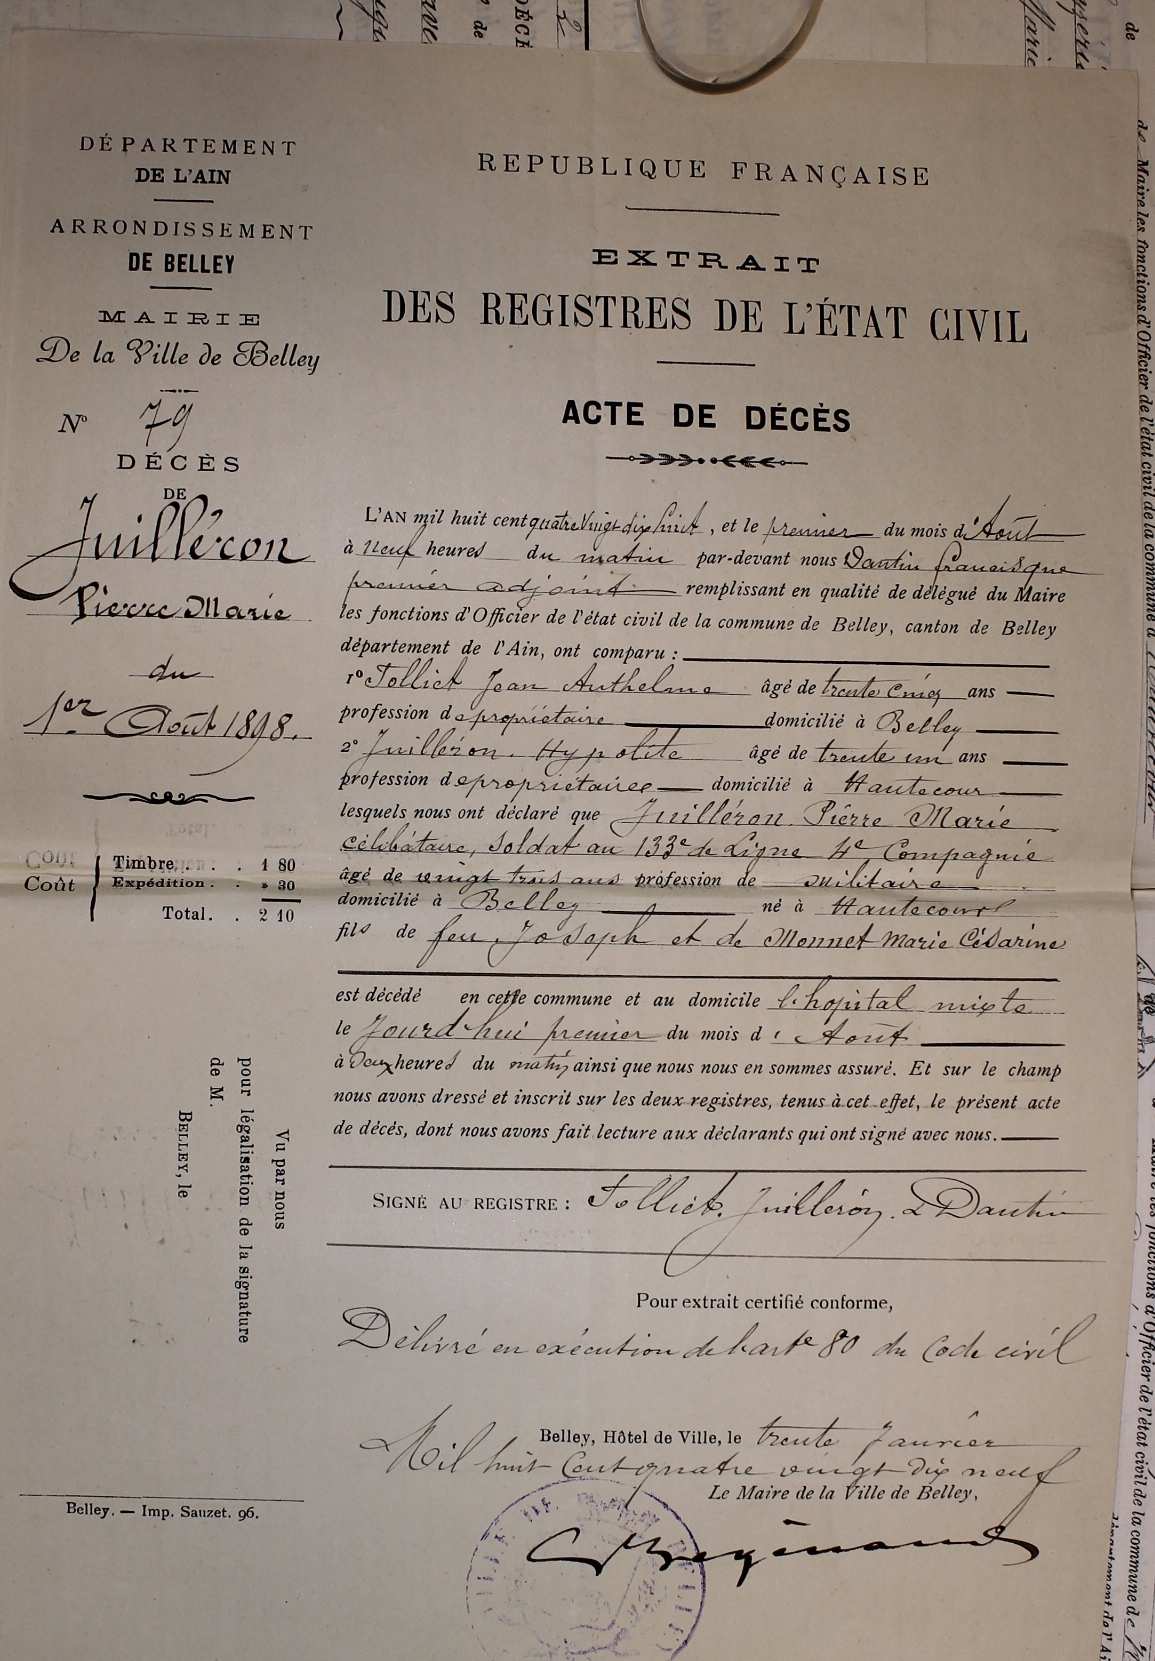 DÉPARTEMENT
DE L'AIN
ARRONDISSEMENT
DE BELLEY
MAIRIE
De la Ville de Belley
N° 79
DÉCÈS
DE
Juilléron
Pierre Marie
du
1er Août 1898.
Coût
Timbre. . . 1 80
Expédition . . » 30
Total. . 2 10
Vu par nous
pour légalisation de la signature
de M.
BELLEY, le
Belley. — Imp. Sauzet. 96.
REPUBLIQUE FRANÇAISE
EXTRAIT
DES REGISTRES DE L'ÉTAT CIVIL
ACTE DE DÉCÈS
L'AN mil huit cent quatre Vingt dix huit, et le premier du mois d'Août
à Neuf heures du matin par-devant nous Dantin francisque
premier adjoint remplissant en qualité de délégué du Maire
les fonctions d'Officier de l'état civil de la commune de Belley, canton de Belley
département de l'Ain, ont comparu :
1° Folliet Jean Anthelme âgé de trente cinq ans
profession de propriétaire domicilié à Belley
2° Juilléron. Hypolite âgé de trente un ans
profession de propriétaire domicilié à Hautecour
lesquels nous ont déclaré que Juilléron. Pierre Marie
célibataire, soldat au 133e de Ligne 4e Compagnie
âgé de vingt trois ans profession de militaire
domicilié à Belley né à Hautecour
fils de feu Joseph et de Monnet Marie Césarine
est décédé en cette commune et au domicile l'hopital mixte
le Jourd'hui premier du mois d' Août
à Deux heures du matin ainsi que nous nous en sommes assuré. Et sur le champ
nous avons dressé et inscrit sur les deux registres, tenus à cet effet, le présent acte
de décés, dont nous avons fait lecture aux déclarants qui ont signé avec nous.
SIGNÉ AU REGISTRE : Folliet. Juilleron. Dantin
Pour extrait certifié conforme,
Délivré en exécution de l'arte 80 du Code civil
Belley, Hôtel de Ville, le trente Janvier
Mil huit Cent quatre vingt dix neuf
Le Maire de la Ville de Belley,